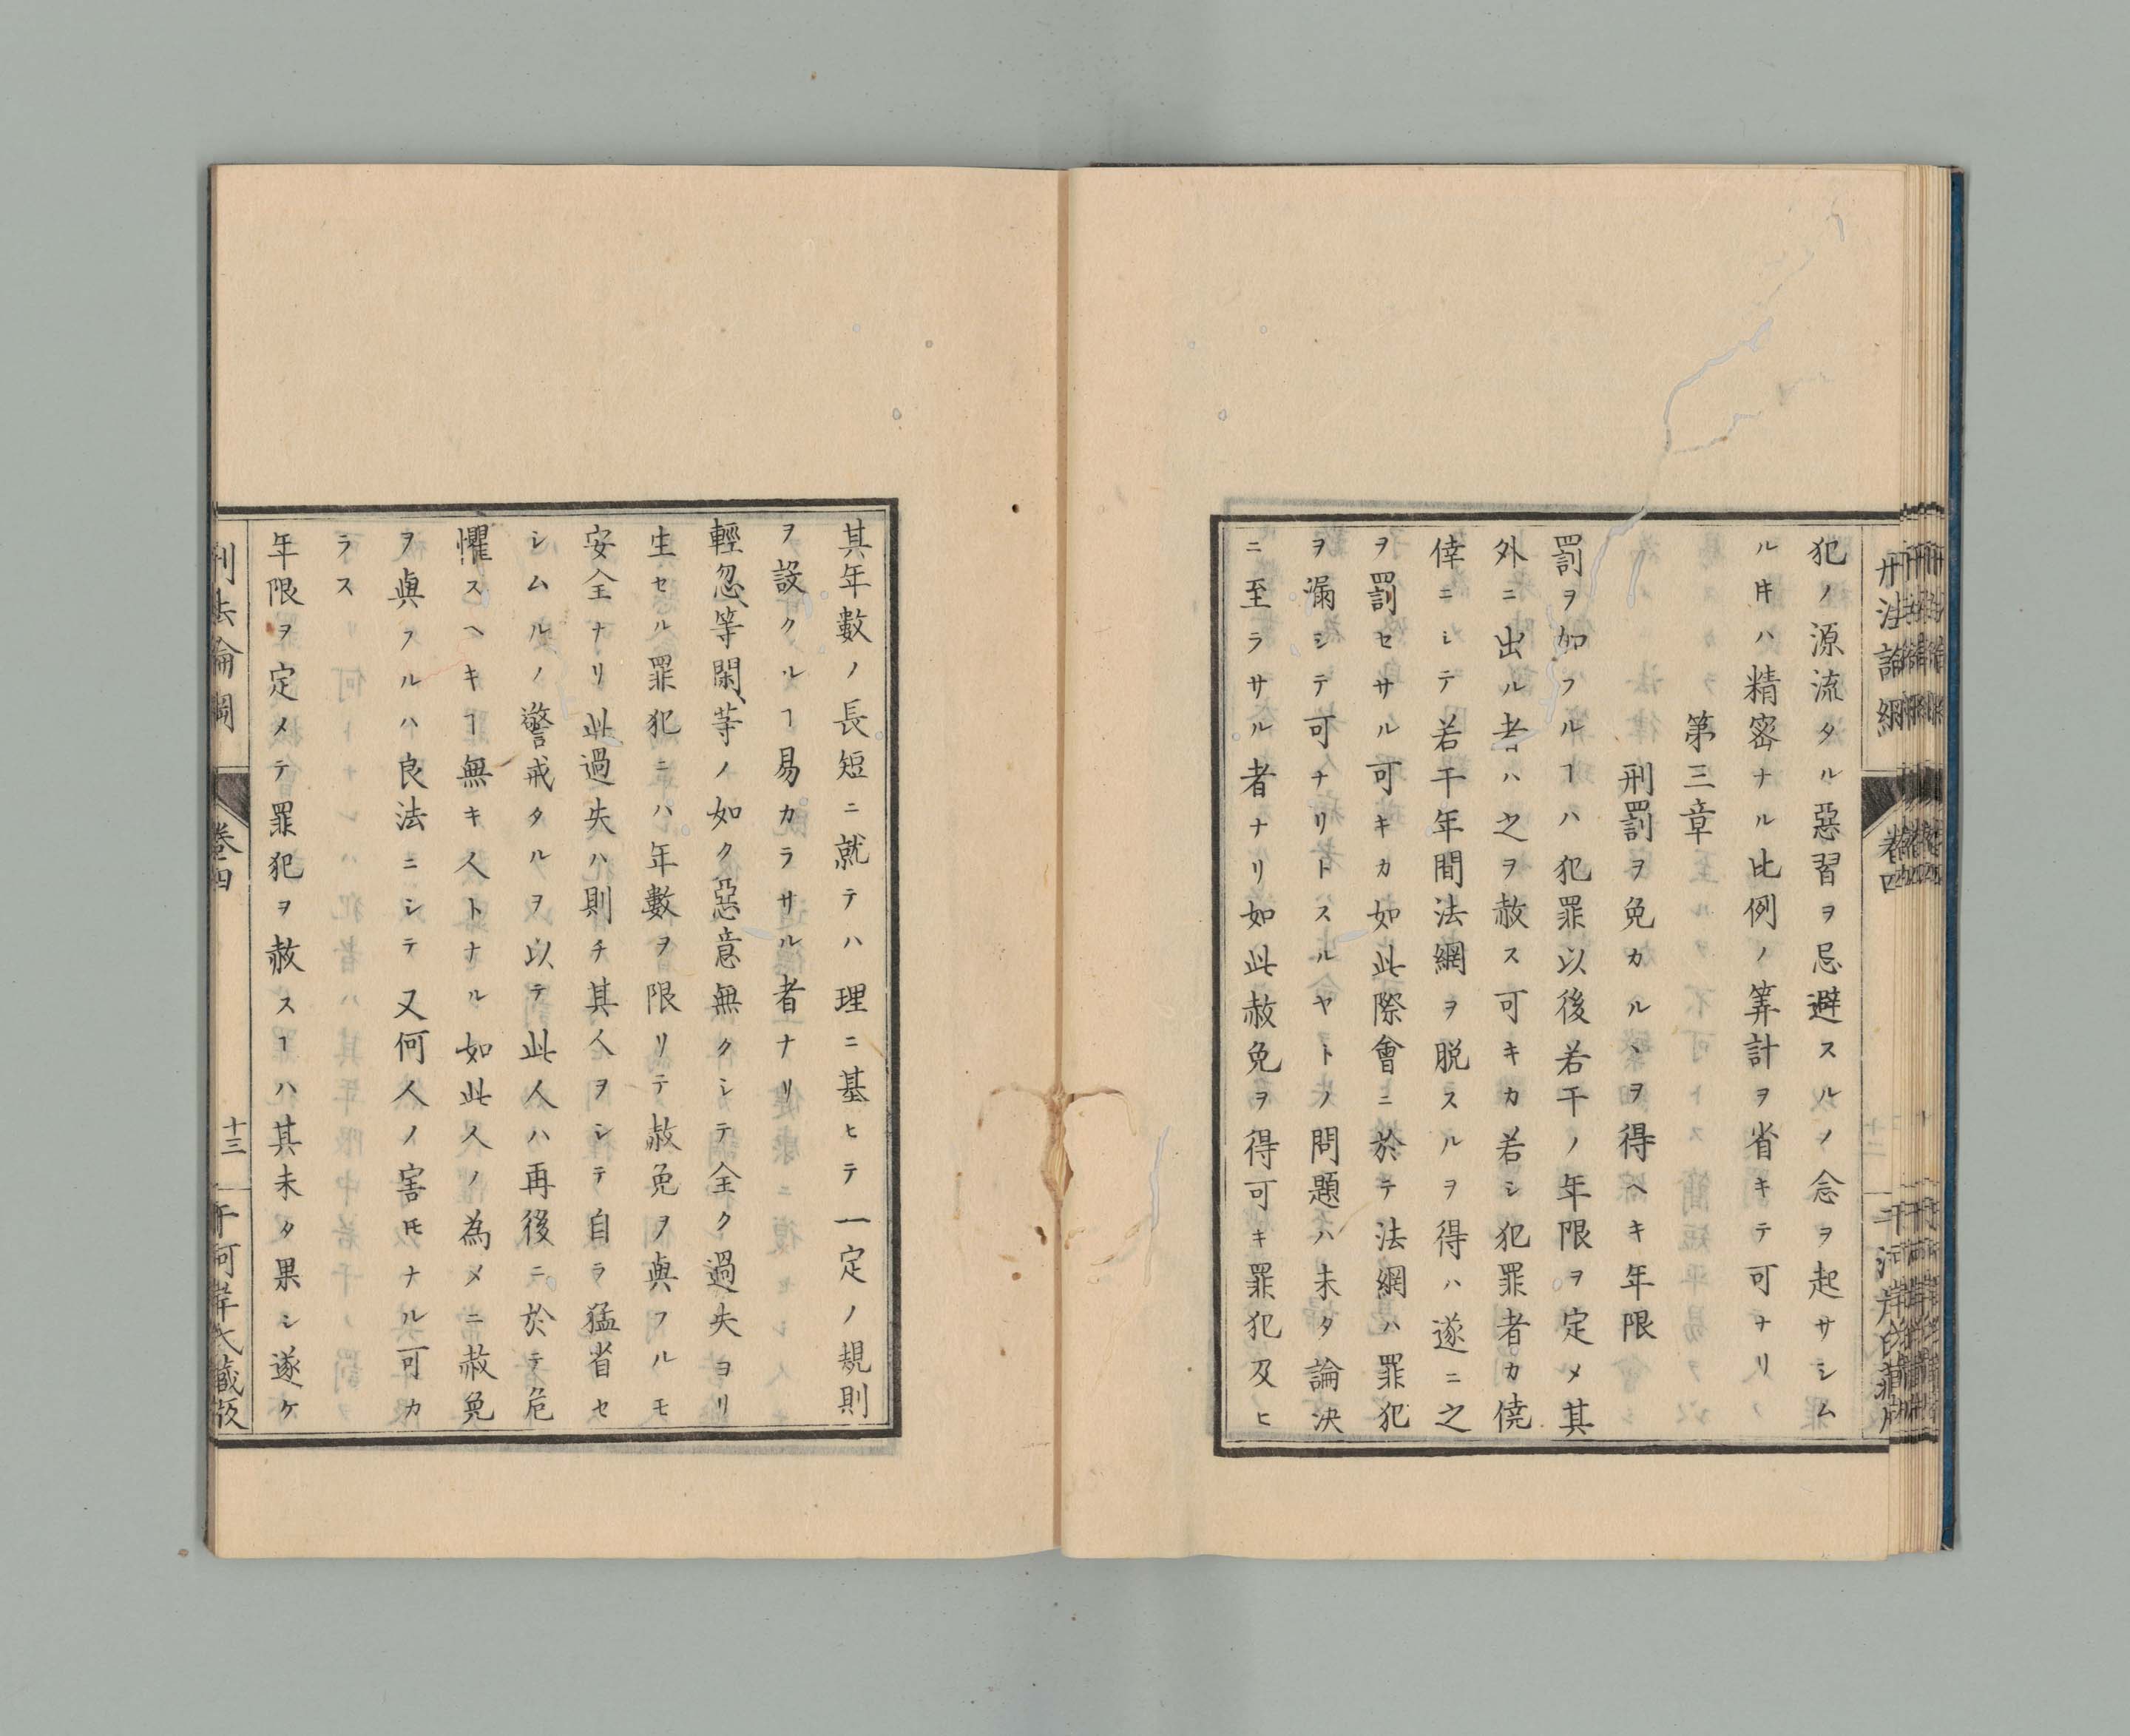 犯ノ源流タル惡習ヲ忌避スルノ念ヲ起サシム
ルㇳキハ精密ナル比例ノ筭計ヲ省キテ可ナリ
第三章
刑罰ヲ免カルヽヲ得ヘキ年限
罰ヲ加フルヿハ犯罪以後若干ノ年限ヲ定メ其
外ニ出ル者ハ之ヲ赦ス可キカ若シ犯罪者カ僥
倖ニシテ若干年間法網ヲ脱スルヲ得ハ遂ニ之
ヲ罰セサル可キカ如此際會ニ於テ法網ハ罪犯
ヲ漏シテ可ナリトスルヤトノ問題ハ未タ論決
ニ至ラサル者ナリ如此赦免ヲ得可キ罪犯及ヒ
其年數ノ長短ニ就テハ理ニ基ヒテ一定ノ規則
ヲ設クルヿ易カラサル者ナリ
輕忽等閑等ノ如ク惡意無クシテ全ク過失ヨリ
生セル罪犯ニハ年數ヲ限リテ赦免ヲ與フルモ
安全ナリ此過失ハ則チ其人ヲシテ自ラ猛省セ
シムルノ警戒タルヲ以テ此人ハ再後ニ於テ危
懼スヘキヿ無キ人トナル如此人ノ為メニ赦免
ヲ與フルハ良法ニシテ又何人ノ害𪜈ナル可カ
ラス
年限ヲ定メテ罪犯ヲ赦スヿハ其未タ果シ遂ケ
刑法論綱
卷四
十三